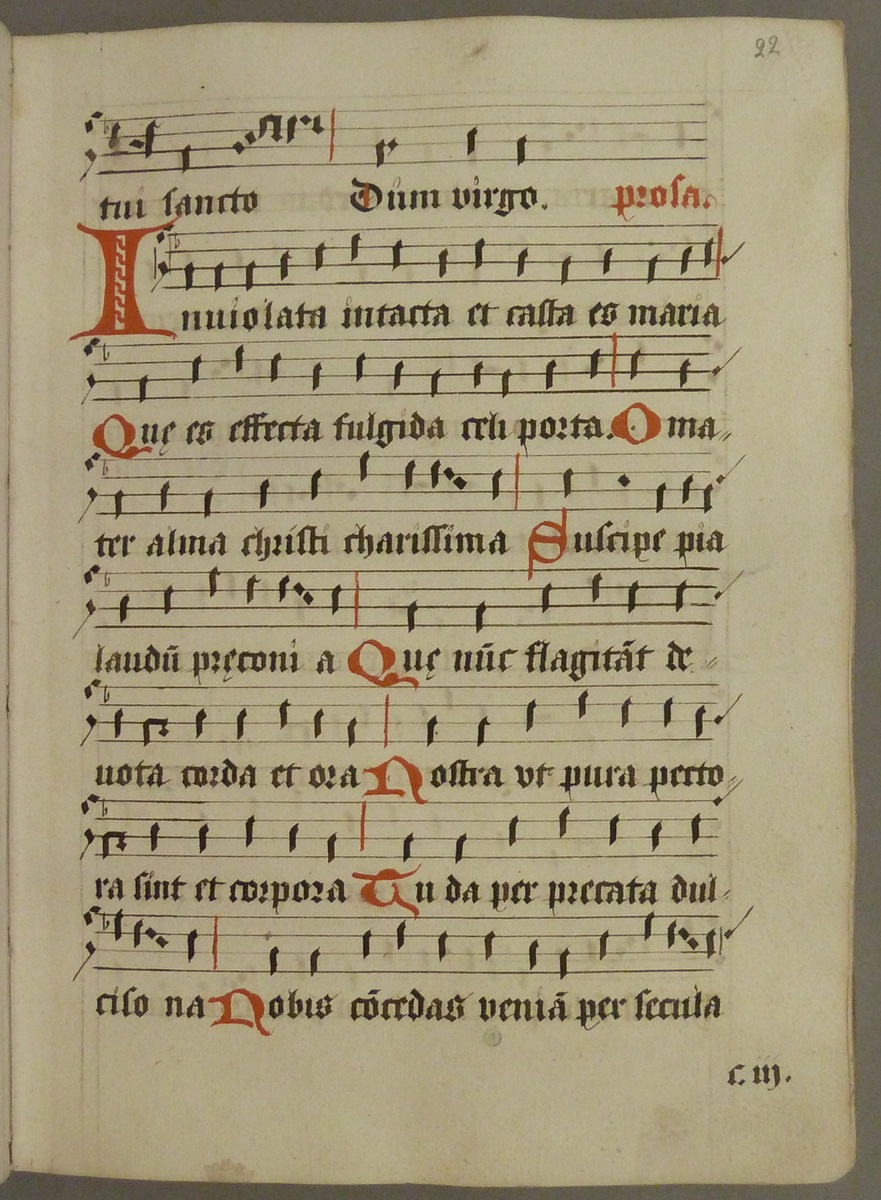 22
tui sancto Dum virgo. prosa.
Inuiolata intacta et casta es maria
Quę es effecta fulgida celi porta. O ma„
ter alma christi charissima Suscipe pia
laudū pręconi a Quę nūc flagitāt de„
uota corda et ora Nostra vt pura pecto„
ra sint et corpora Tu da per precata dul„
ciso na Nobis cōcedas veniā per secula
c. iij.